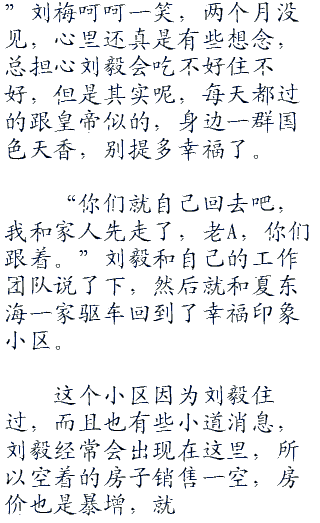 ”刘梅呵呵一笑，两个月没
见，心里还真是有些想念，
总担心刘毅会吃不好住不
好，但是其实呢，每天都过
的跟皇帝似的，身边一群国
色天香，别提多幸福了。
“你们就自己回去吧，
我和家人先走了，老A，你们
跟着。”刘毅和自己的工作
团队说了下，然后就和夏东
海一家驱车回到了幸福印象
小区。
这个小区因为刘毅住
过，而且也有些小道消息，
刘毅经常会出现在这里，所
以空着的房子销售一空，房
价也是暴增，就